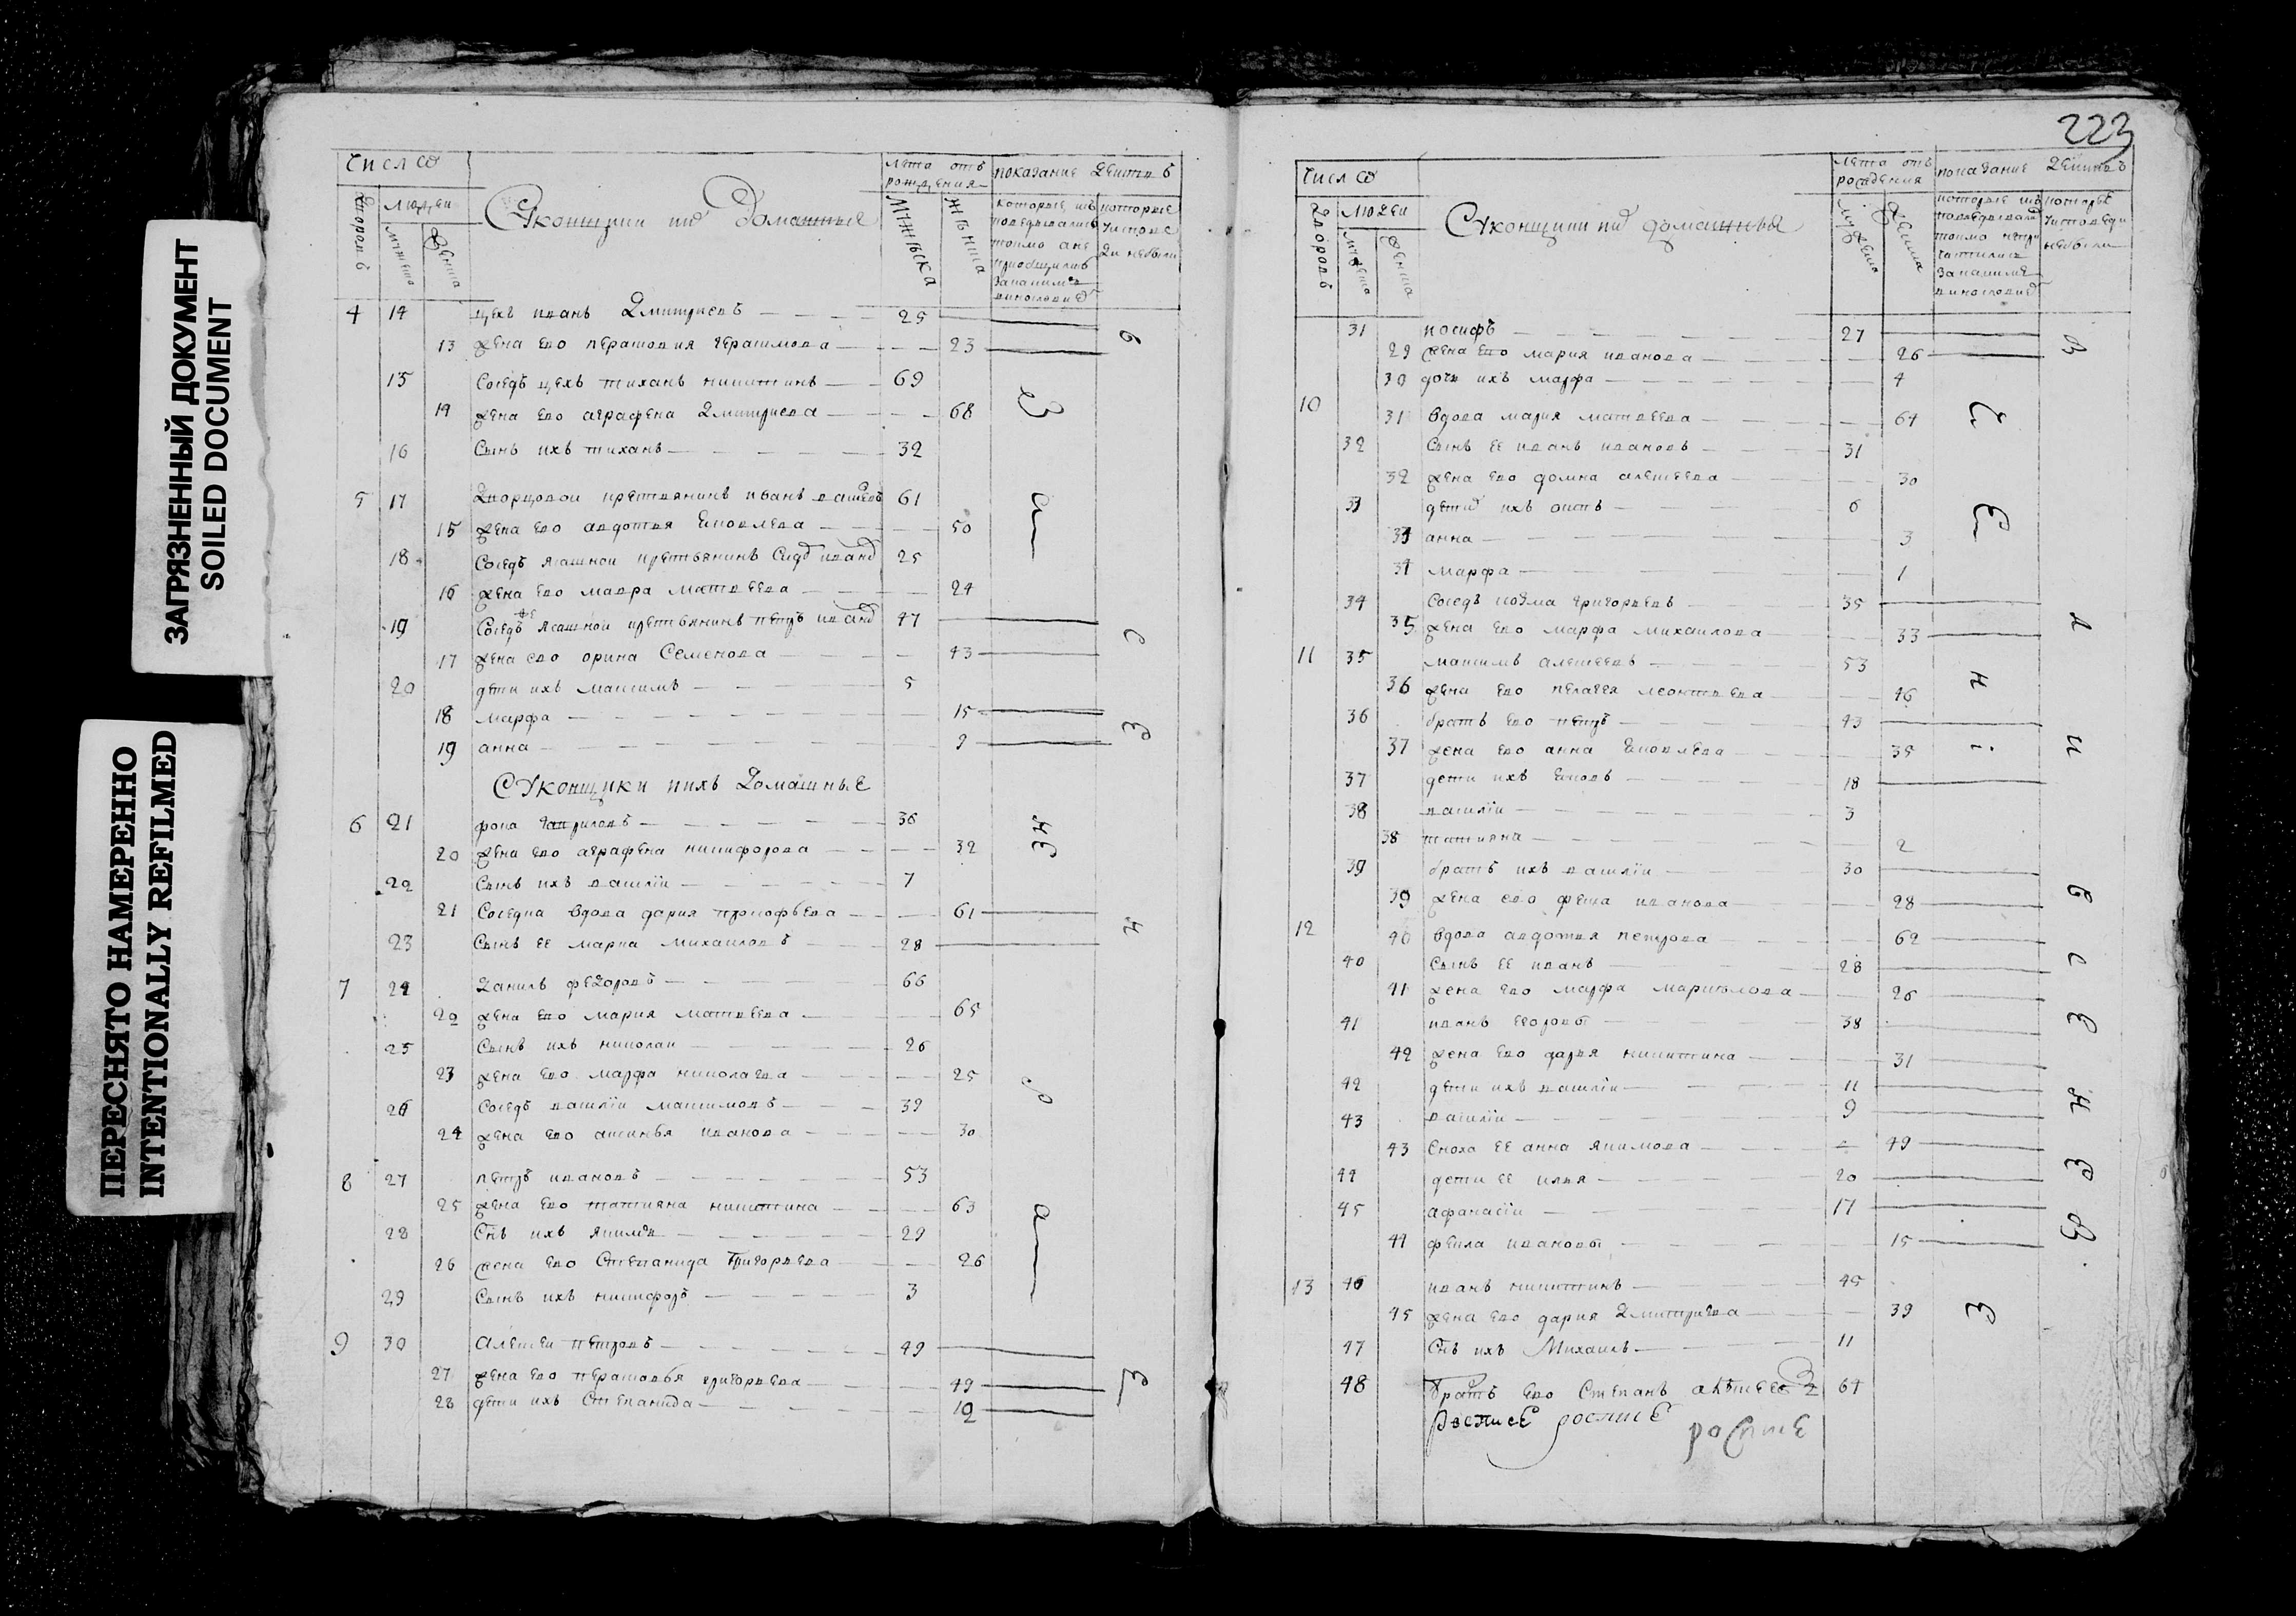 ЗАГРЯЗНЕННЫЙ ДОКУМЕНТ
SOILED DOCUMENT
ПЕРЕСНЯТО НАМЕРЕННО
INTENTIONALLY REFILMED
число
людеи
Суконщики их Домашные
лета отъ рождения
показание
4 14 цехъ иванъ Дмитриевъ 25
13 жена ево парасковия герасимова 23
15 Соседъ цехъ тиханъ никитинъ 69
14 жена ево аграфена Дмитриева 68
16 Сынъ ихъ тиханъ 32
5 17 Дворцовои крестьянинъ иванъ 61
15 жена ево авдотья яковлева 50
18 Соседъ ясашнои крестьянинъ 25
16 жена ево мавра матвеева 24
19 Соседъ ясашнои крестьянинъ петръ иванов 47
17 жена ево орина Семенова 43
20 дети ихъ максимъ 5
18 марфа 15
19 анна 9
Суконщики ихъ Домашные
6 21 фока гаврилавъ 36
20 жена ево аграфена никифорова 32
22 Сынъ ихъ василiи 7
21 Соседка вдова дария прокофьева 61
23 Сынъ ее марка михаиловъ 28
7 24 Данилъ федоровъ 66
22 жена ево мария матвеева 65
25 Сынъ ихъ николаи 26
23 жена ево марфа николаева 25
26 Соседъ василiи максимовъ 39
24 жена ево аксинья иванова 30
8 27 петръ ивановъ 53
25 жена ево татияна никитина 63
28 Снъ ихъ якимъ 29
26 жена ево Степанида Григорьева 26
29 Сынъ ихъ никифоръ 3
9 30 Алексеи петровъ 49
27 жена ево парасковья григорьева 49
28 дети ихъ Степанида 12
223
число
людеи
Суконщики их домашныя
лета отъ рождения
31 иосифъ 27
29 жена ево мария иванова 26
30 дочь ихъ марфа 4
10 31 вдова мария матвеева 64
32 Сынъ ее иванъ ивановъ 31
32 жена ево домна алексеева 30
33 дети ихъ осипъ 6
33 анна 3
34 марфа 1
34 Соседъ козма григорьевъ 35
35 жена ево марфа михаилова 33
11 35 максимъ алексеевъ 53
36 жена ево пелагея леонтьева 46
36 братъ ево петръ 43
37 жена ево анна яковлева 35
37 дети ихъ яковъ 18
38 василiи 3
38 татияна 2
39 братъ ихъ василiи 30
39 жена ево фекла иванова 28
12 40 вдова авдотья петрова 62
40 Сынъ ее иванъ 28
41 жена ево марфа 26
41 иванъ егоровъ 38
42 жена ево дарья никитина 31
42 дети ихъ василiи 11
43 василiи 9
43 Сноха ее анна якимова 49
44 дети ее илья 20
45 афанасiи 17
44 фекла ивановы 15
13 46 иванъ никитинъ 45
45 жена ево дария Дмитриева 39
47 Снъ ихъ Михаилъ 11
48 братъ ево Степанъ алексеевъ 64